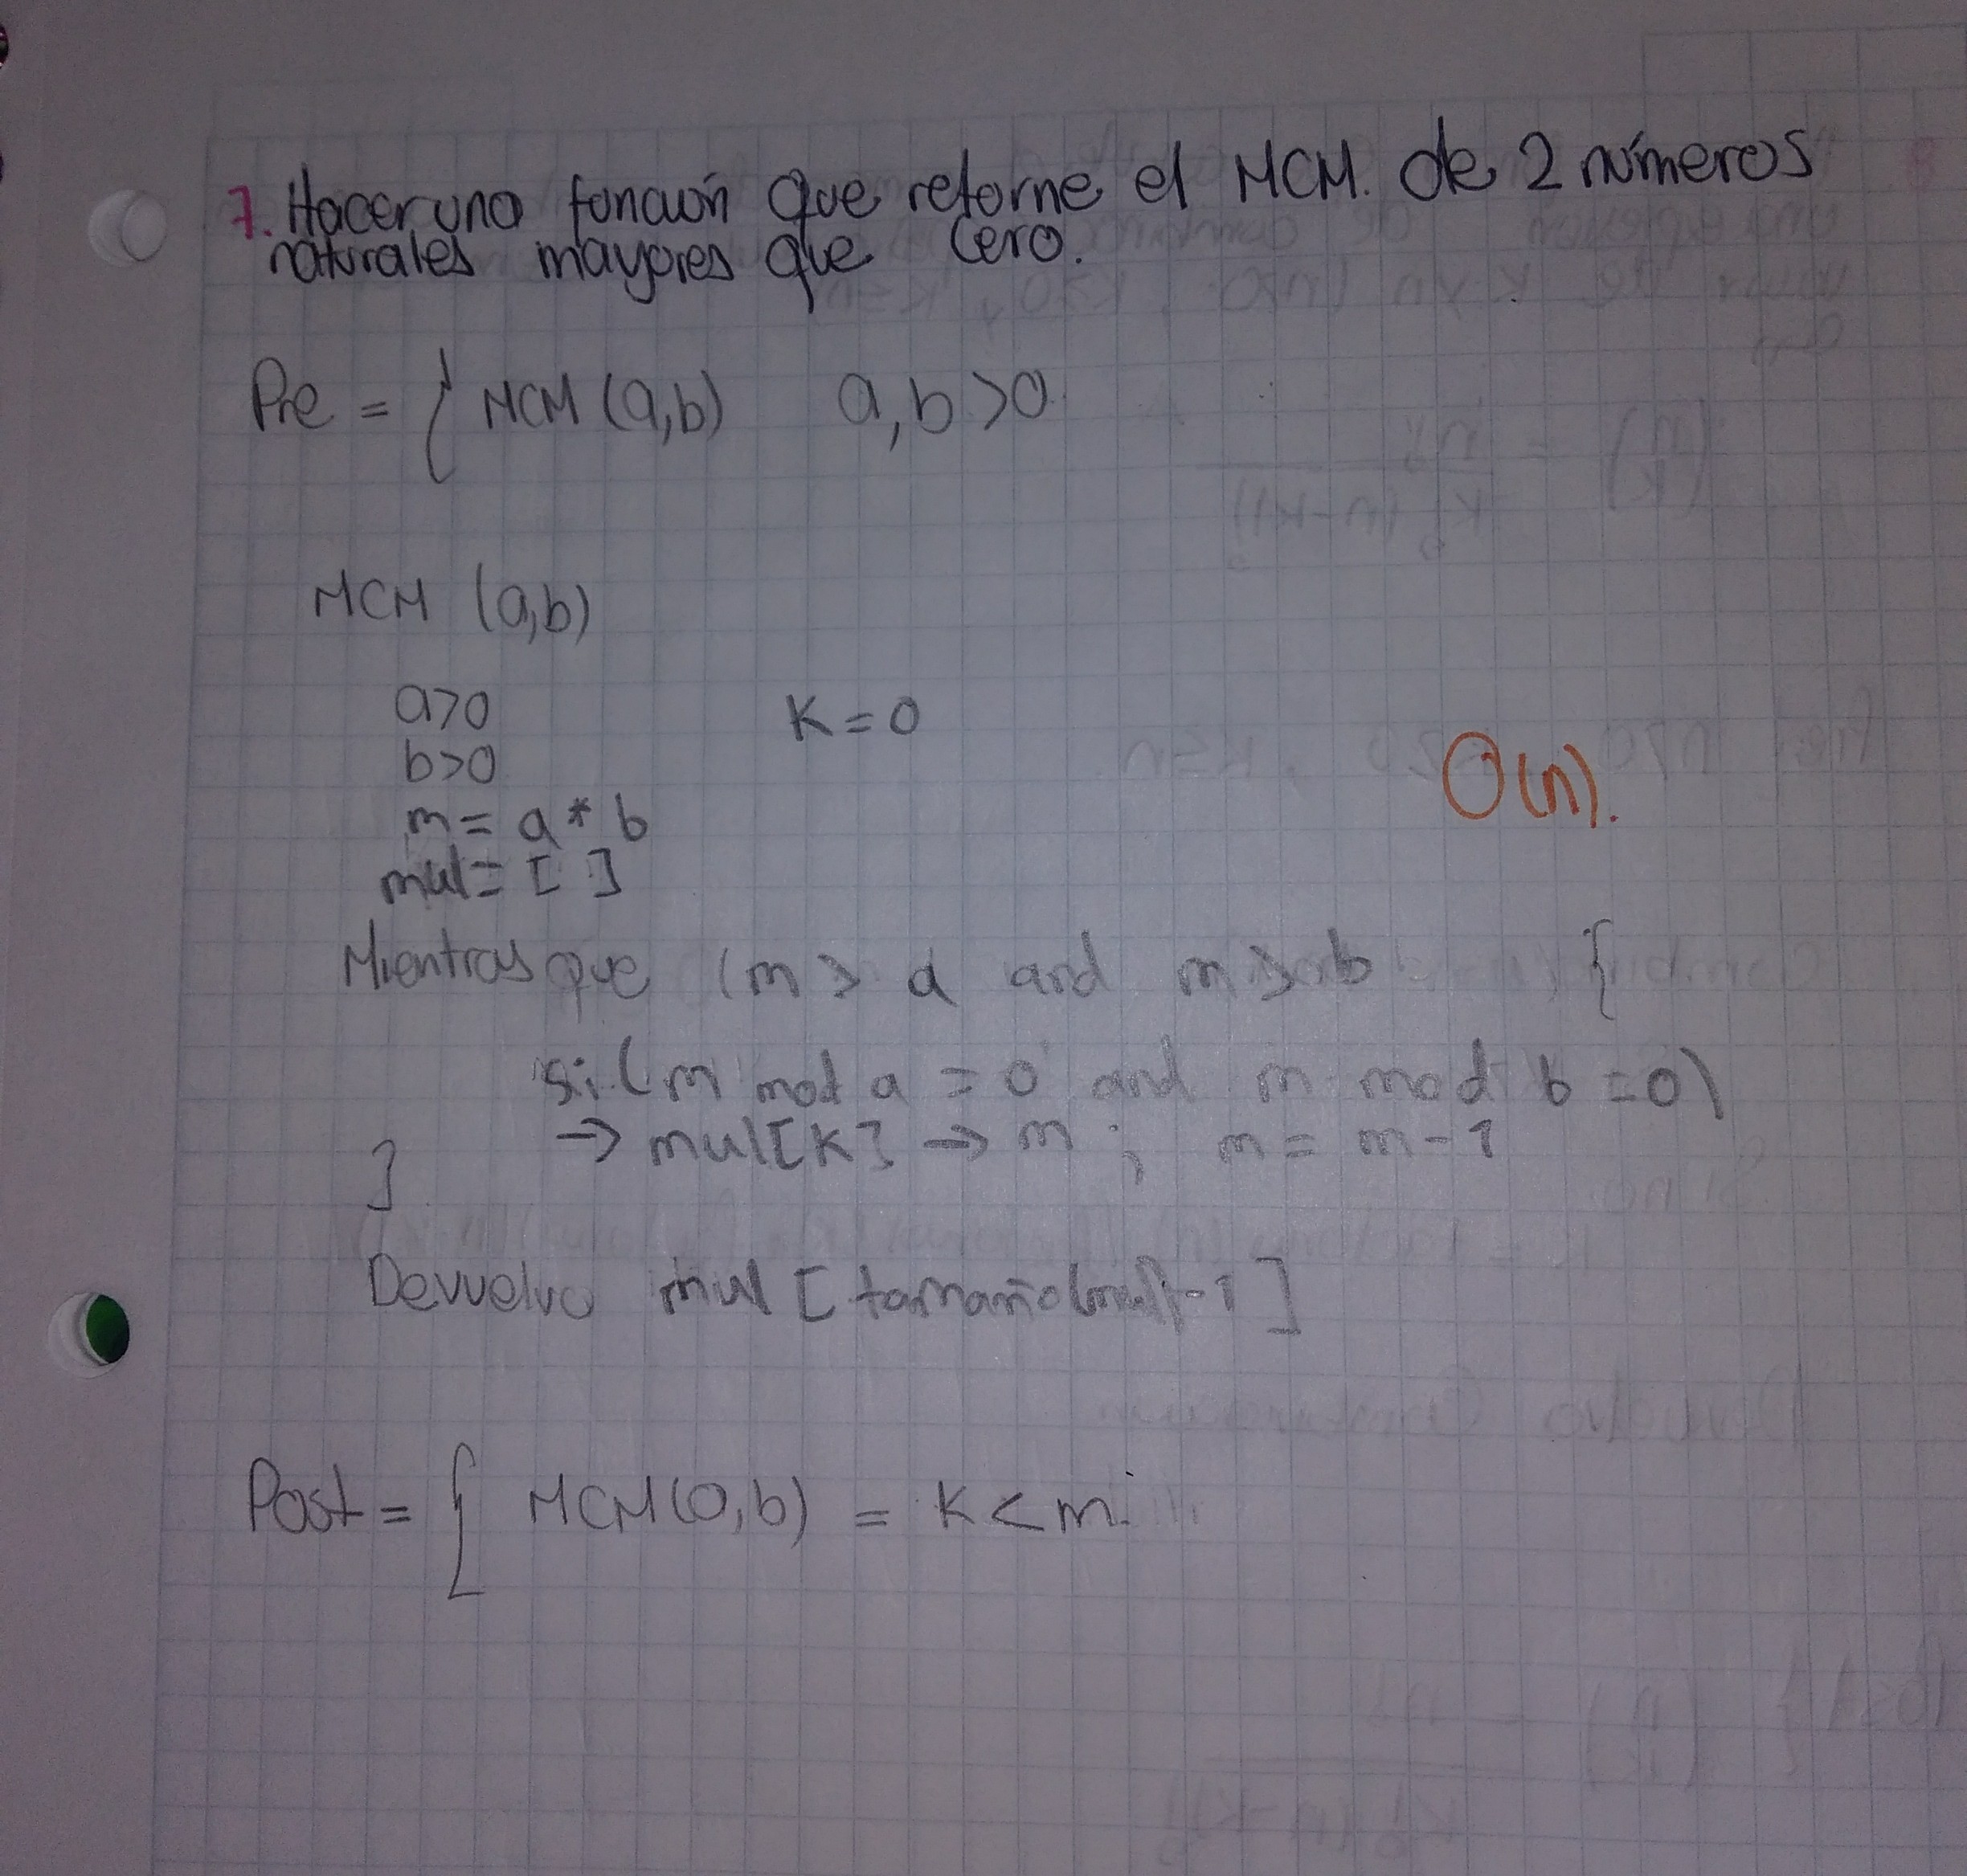 7. Hacer una función que retorne el MCM. de 2 números
naturales mayores que cero.
Pre = { MCM (a,b) a,b >0
MCM (a,b)
a>0 K=0
b>0
O(n).
m= a * b
mul= [ ]
Mientras que (m > a and m > b {
si (m mod a = 0 and m mod b = 0)
→ mul[K] → m ; m = m-1
}
Devuelvo mul [tamaño(mul)-1]
Post = { MCM(a,b) = K < m.